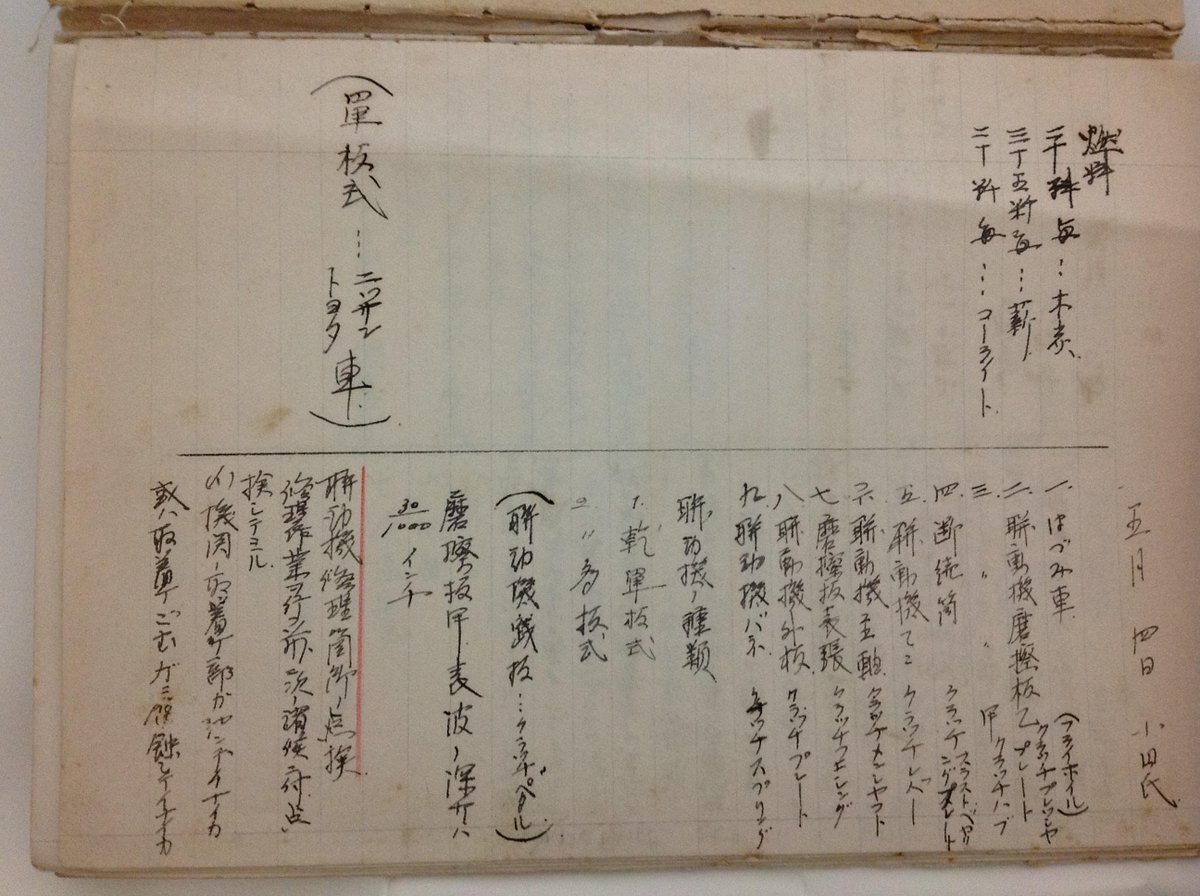 五月四日 小田氏
一、はづみ車 (フライホイル)
二、聯動機磨擦板乙 クラッチプレッシャプレート
三、〃 〃 甲 クラッチハブ
四、断続筒 クラッチスラストベヤリングプレート
五、聯動機てこ クラッチレバー
六、聯動機主軸 クラッチメンシャフト
七、磨擦板表張 クラッチフェーシング
八、聯動機外板 クラッチプレート
九、聯動機バネ クラッチスプリング
聯動機ノ種類
1. 乾単板式
2. 〃多板式
(聯動機践板…クラッチペダル)
磨擦板甲ノ表波ノ深サハ
30/1000 インチ
聯動機修理箇所ノ点検
修理作業ヲ行フ前ニ次ノ
検シテミル
(イ)機関ノ取着ケ部ガ
或ハ取着ごむガ
燃料
二千粁毎…木炭
二千五粁毎…薪
二千粁毎…コーライト
(單板式…ニッサン トヨタ 車)